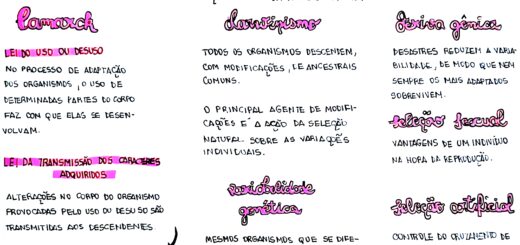 lamarck
LEI DO USO OU DESUSO
NO PROCESSO DE ADAPTAÇÃO
DOS ORGANISMOS, O USO DE
DETERMINADAS PARTES DO CORPO
FAZ COM QUE ELAS SE DESEN-
VOLVAM.
LEI DA TRANSMISSÃO DOS CARACTERES
ADQUIRIDOS
ALTERAÇÕES NO CORPO DO ORGANISMO
PROVOCADAS PELO USO OU DESUSO SÃO
TRANSMITIDAS AOS DESCENDENTES
darwinismo
TODOS OS ORGANISMOS DESCENDEM,
COM MODIFICAÇÕES, DE ANCESTRAIS
COMUNS.
O PRINCIPAL AGENTE DE MODIFI-
CAÇÕES É A AÇÃO DA SELEÇÃO
NATURAL SOBRE AS VARIAÇÕES
INDIVIDUAIS.
variabilidade
genética
MESMOS ORGANISMOS QUE SE DIFE-
deriva gênica
DESASTRES REDUZEM A VARIA-
BILIDADE, DE MODO QUE NEM
SEMPRE OS MAIS ADAPTADOS
SOBREVIVEM.
seleção sexual
VANTAGENS DE UM INDIVÍDUO
NA HORA DA REPRODUÇÃO.
seleção artificial
CONTROLE DO CRUZAMENTO DE